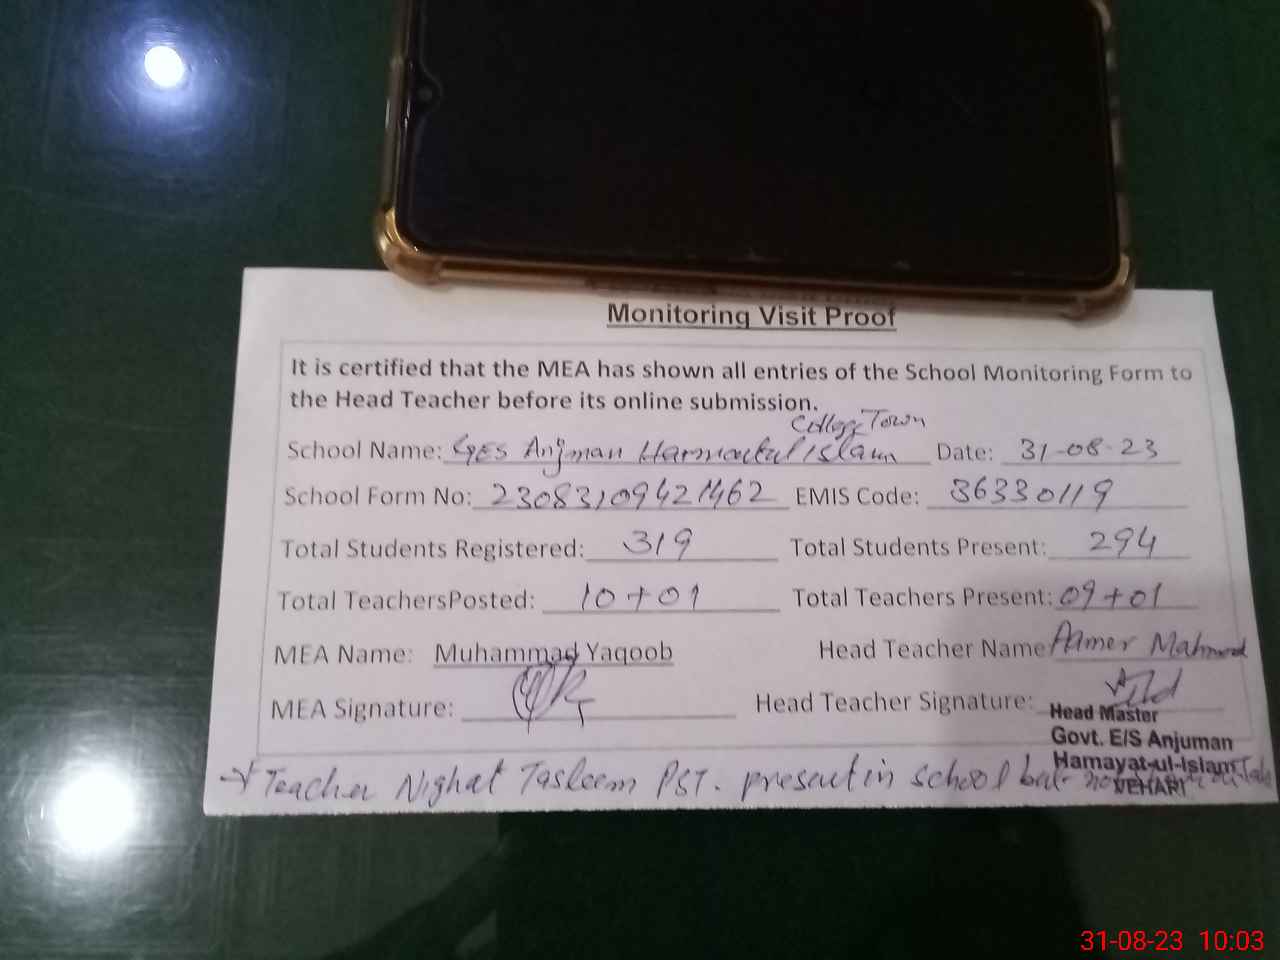 Monitoring Visit Proof
It is certified that the MEA has shown all entries of the School Monitoring Form to
the Head Teacher before its online submission.
College Town
School Name: GES Anjman Harmactul Islam Date: 31-08-23
School Form No: 23083109421462 EMIS Code: 36330119
Total Students Registered: 319 Total Students Present: 294
Total TeachersPosted: 10+01 Total Teachers Present: 09+01
MEA Name: Muhammad Yaqoob Head Teacher Name Aamer Mahmood
MEA Signature: Head Teacher Signature:
Head Master
Govt. E/S Anjuman
Hamayat-ul-Islam
VEHARI
Teacher Nighat Tasleem PST. present in school but
31-08-23 10:03